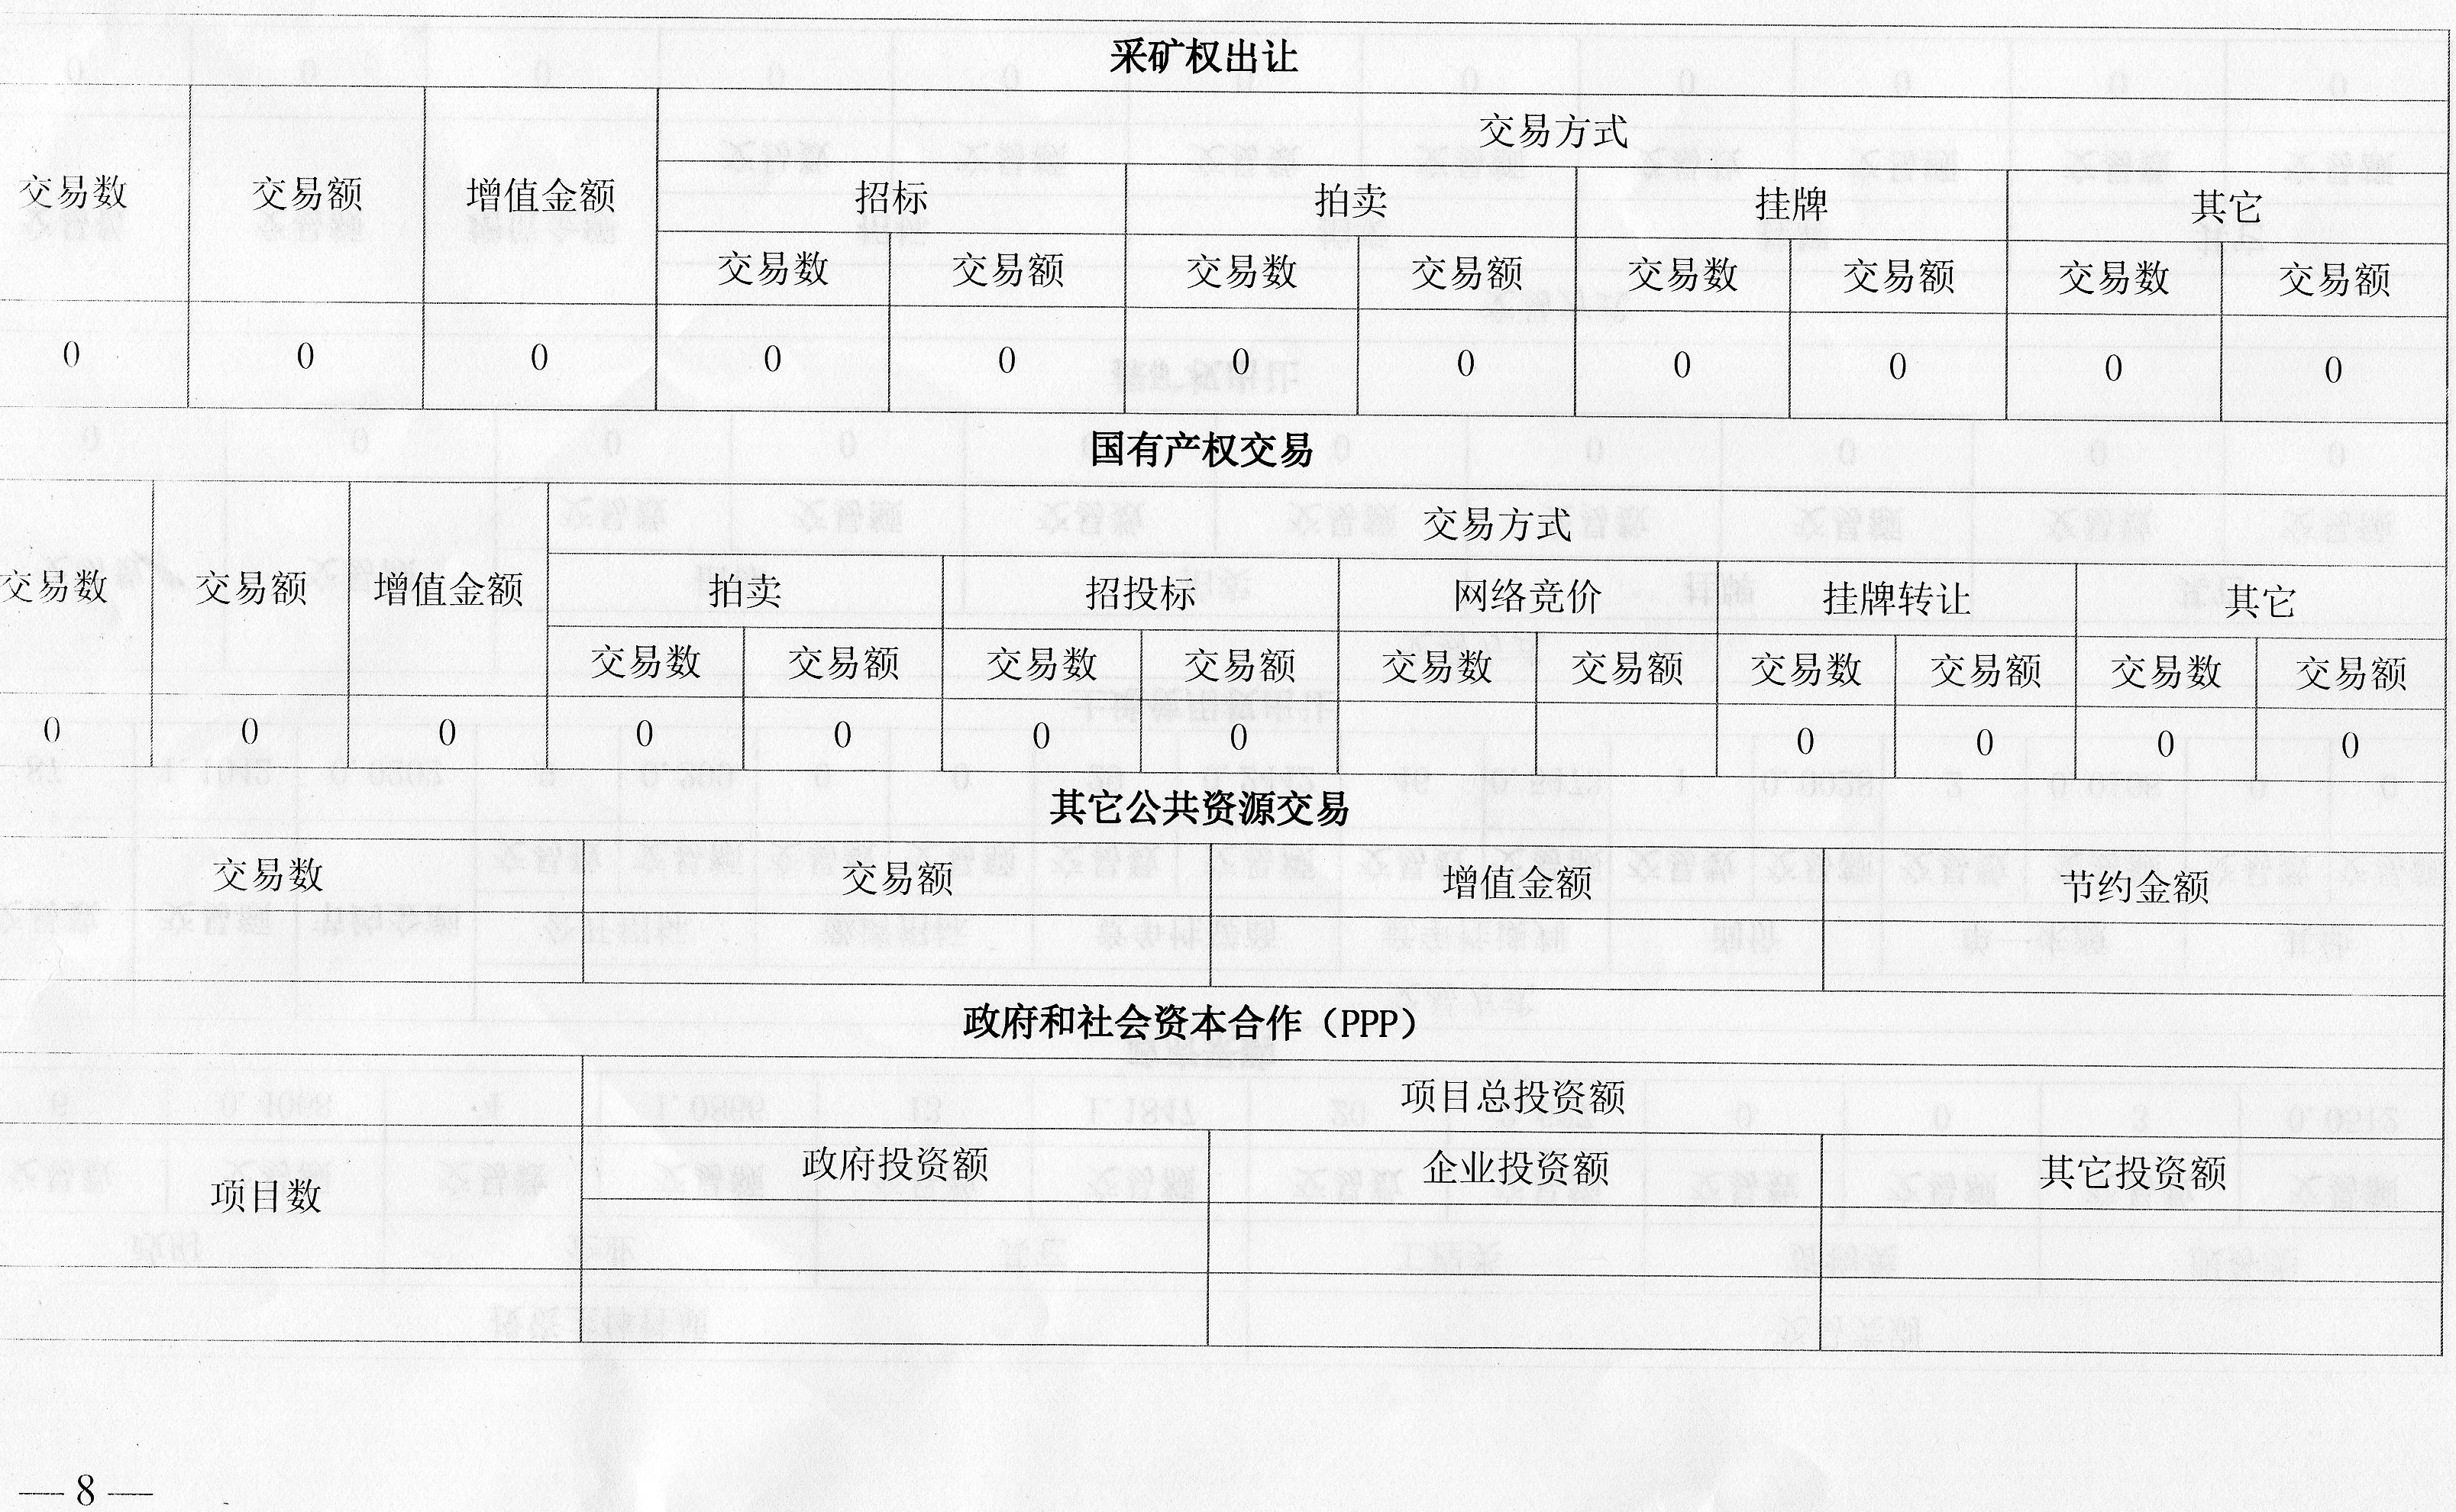 采矿权出让
交易数 交易额 增值金额 交易方式
招标 拍卖 挂牌 其它
交易数 交易额 交易数 交易额 交易数 交易额 交易数 交易额
0 0 0 0 0 0 0 0 0 0 0
国有产权交易
交易数 交易额 增值金额 交易方式
拍卖 招投标 网络竞价 挂牌转让 其它
交易数 交易额 交易数 交易额 交易数 交易额 交易数 交易额 交易数 交易额
0 0 0 0 0 0 0 0 0 0 0
其它公共资源交易
交易数 交易额 增值金额 节约金额
政府和社会资本合作（PPP）
项目数 项目总投资额
政府投资额 企业投资额 其它投资额
— 8 —